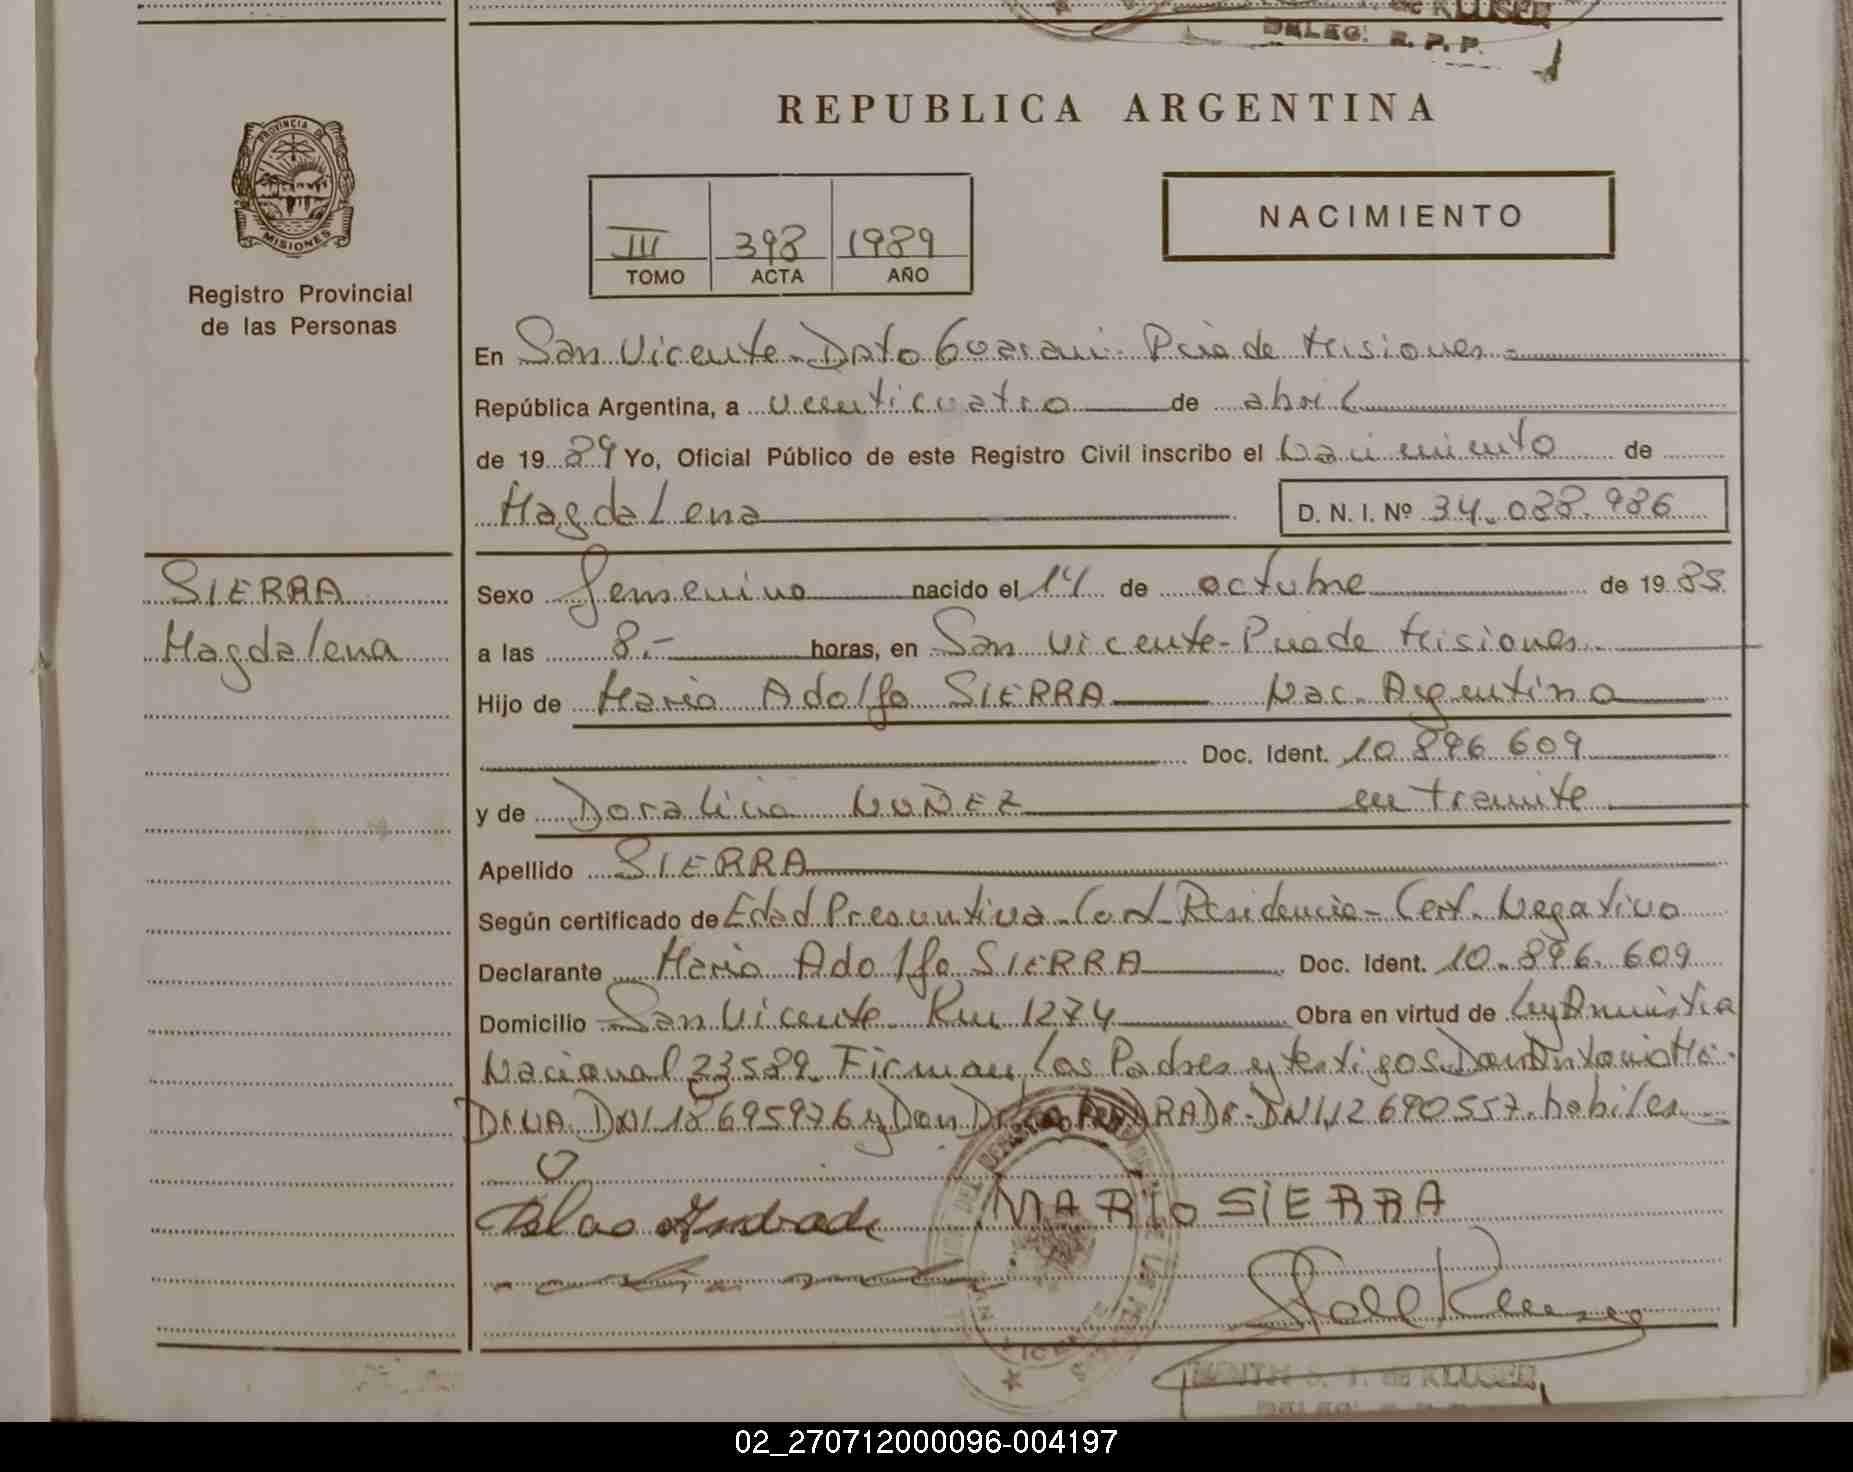 de KLUSER
DELEG. R. P. P.
REPUBLICA ARGENTINA
PROVINCIA DE
MISIONES
NACIMIENTO
III 398 1989
TOMO ACTA AÑO
Registro Provincial
de las Personas
En San Vicente - Dpto Guarani - Pcia de Misiones =
República Argentina, a veenticuatro de abril
de 1989 Yo, Oficial Público de este Registro Civil inscribo el Nacimiento de
Magdalena D. N. I. Nº 34.088.986
SIERRA
Magdalena
Sexo femenino nacido el 14 de octubre de 1985
a las 8.- horas, en San Vicente - Pcia de Misiones
Hijo de Mario Adolfo SIERRA Nac. Argentina
Doc. Ident. 10.896.609
y de Doralicia NUÑEZ en tramite
Apellido SIERRA
Según certificado de Edad Presuntiva - Cert. Residencia - Cert. Negativo
Declarante Mario Adolfo SIERRA Doc. Ident. 10.896.609
Domicilio San Vicente Km 1274 Obra en virtud de Ley Amnistia
Nacional 23589. Firman los Padres y testigos Don Antonio
DNI 695976 y Don DNI 12690557. habiles
MARIO SIERRA
S. T. de KLUSER
02_270712000096-004197